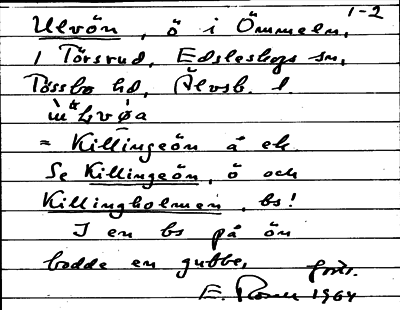 1-2
Ulvön, ö i Ömmeln,
i Törsrud, Edsleskogs sn,
Tössbo hd, Älvsb. l.
= Killingeön å ek.
Se Killingeön, ö och
Killingholmen, bs!
I en bs på ön
bodde en gubbe,
E. 1964